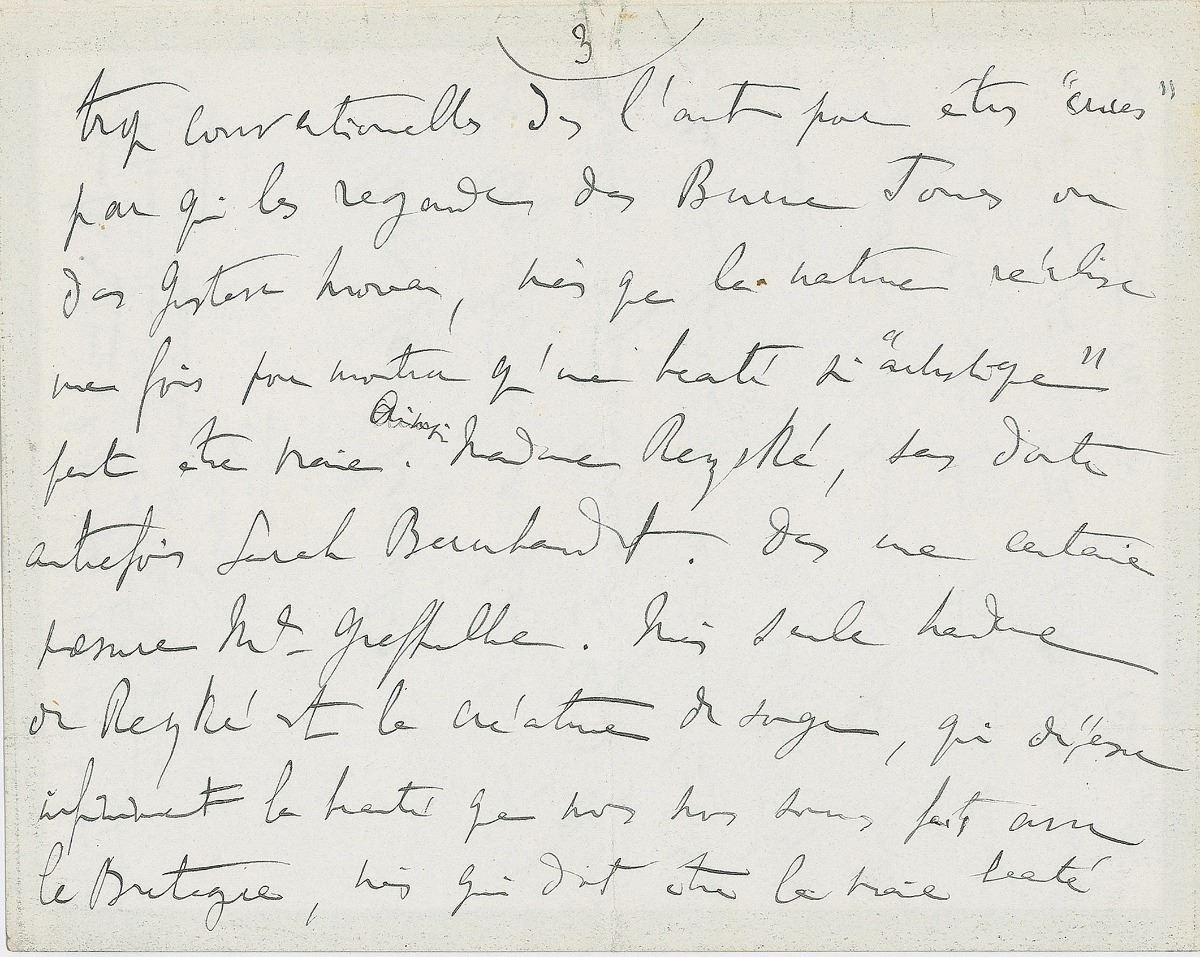 3
trop conventionelles ds l'art pour être "crues"
par qui les regarde ds Burne Jones ou
ds Gustave Moreau, mais que la nature réalise
une fois pour montrer qu'une beauté si "artistique"
peut être vraie. Ainsi Madame Reszké, sans doute
autrefois Sarah Bernhardt. Ds une certaine
mesure Me Greffulhe. Mais seule Madame
de Reszké est la créature de songe, qui dépasse
infiniment la beauté que nous nous sommes fait avec
la Bretagne, mais qui doit être la vraie beauté